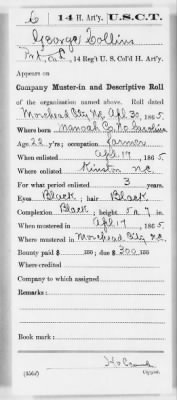 6 14 H. Art'y. U.S.C.T.
George Collins
Pvt, Co. C, 14 Reg't U. S. Col'd H. Art'y.
Appears on
Company Muster-in and Descriptive Roll
of the organization named above. Roll dated
Morehead City N.C. Apl. 30, 1865.
Where born Co. No Carolina
Age 22 y'rs; occupation farmer
When enlisted Apl. 17, 1865.
Where enlisted Kinston N.C.
For what period enlisted 3 years.
Eyes Black; hair Black
Complexion Black; height 5 ft. 7 in.
When mustered in Apl 17, 1865.
Where mustered in Morehead City N.C.
Bounty paid $ 100; due $ 300 100
Where credited
Company to which assigned
Remarks:
Book mark:
(356d) Copyist.